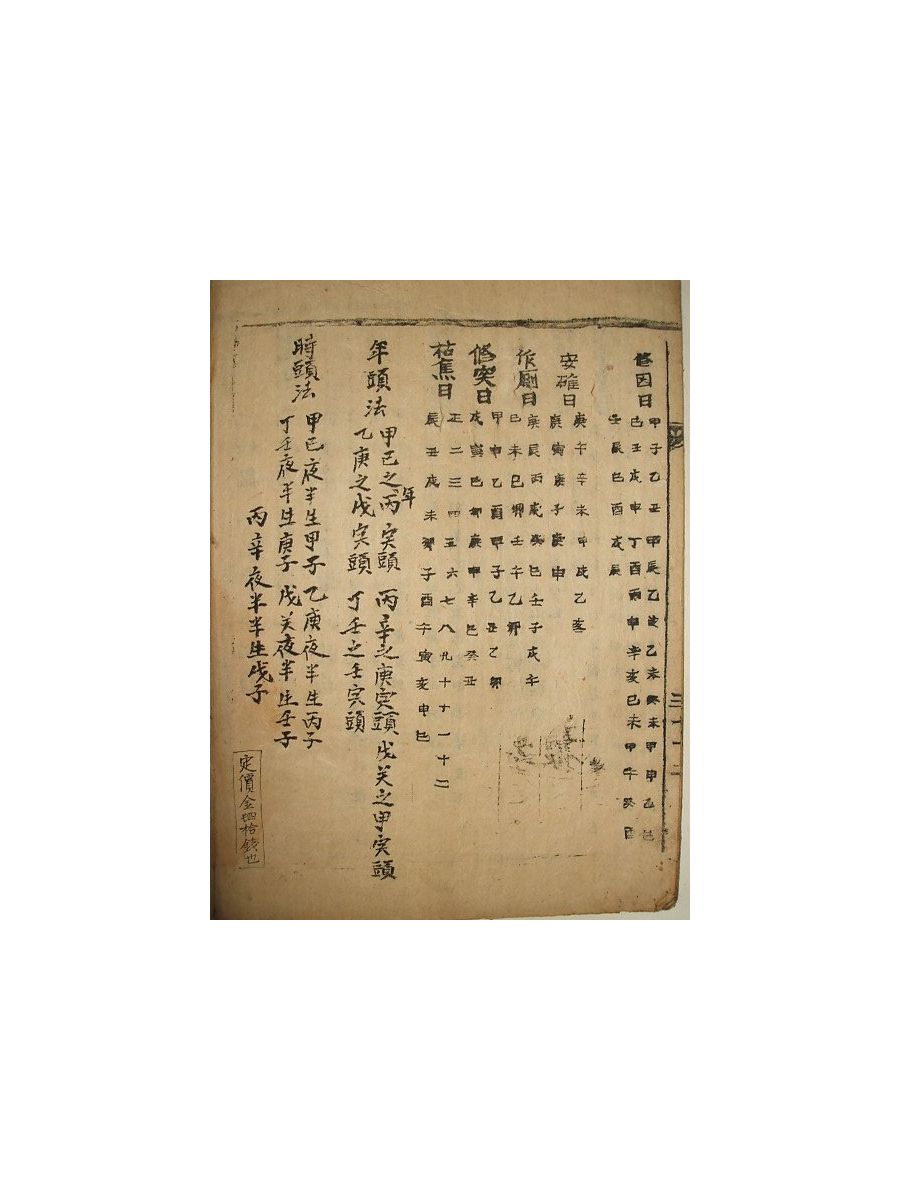 修因日
甲子乙丑甲辰乙亥乙未癸未甲申乙巳
己壬戌申丁酉丙申辛亥己未甲午癸酉
壬辰己酉戌辰
安碓日
庚午辛未甲戌乙亥
庚寅庚子庚申
作厠日
庚辰丙戌癸巳壬子戌午
己未巳卯壬午乙卯
修突日
甲申乙酉甲子乙丑乙卯
戌寅巳卯庚申辛巳癸丑
枯焦日
正二三四五六七八九十十一十二
辰丑戌未卯子酉午寅亥申巳
年頭法
甲己之年丙寅頭 丙辛之庚寅頭 戊癸之甲寅頭
乙庚之戊寅頭 丁壬之壬寅頭
時頭法
甲己夜半生甲子 乙庚夜半生丙子
丁壬夜半生庚子 戊癸夜半生壬子
丙辛夜半半生戊子
定價金四拾錢也
三十二